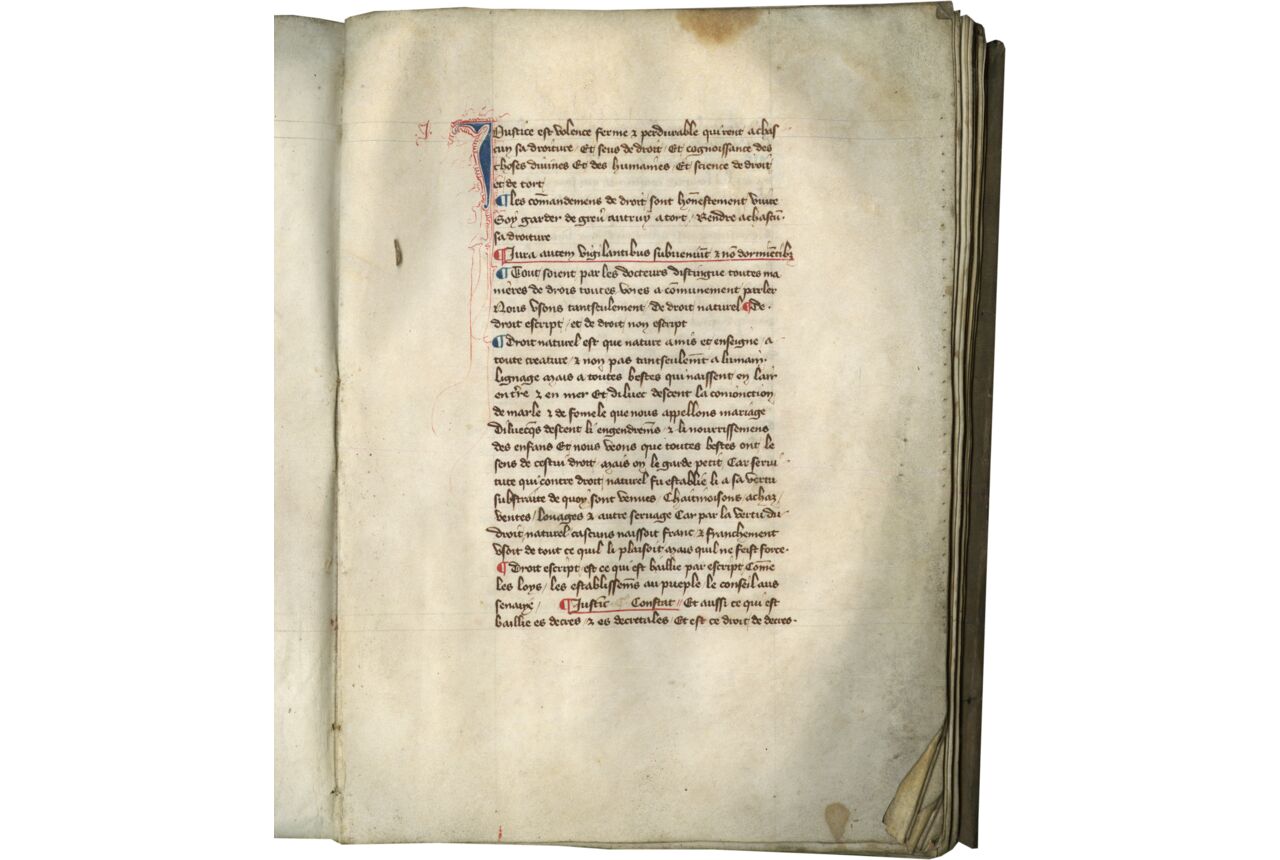 J.
Justice est volence ferme & perdurable qui rent a chas
cun sa droiture / Et sens de droit / Et cognoissance des
choses divines Et des humaines / Et science de droit
et de tort
¶ les com̄andemens de droit sont hōnestement vivre
Soy garder de grev̄ autruy a tort / Rendre a chascū.
sa droiture
¶ Jura autem vigilantibus subveniūt & nō dormiētibꝫ
¶ Tout soient par les docteurs distingue toutes ma
nieres de drois toutes voies a cōmunement parler
Nous usons tantseulement / De droit naturel ¶ De.
droit escript / et de droit non escript
¶ Droit naturel est que nature a mis et enseigne a
toute creature / & non pas tantseulemt̄ a lumain.
lignage mais a toutes bestes qui naissent en lair
en tr̄e & en mer Et diluec descent la conionction
de marle & de fomele que nous appellons mariage
Diluecq̄s descent li engendremēs & li nourrissemens
des enfans Et nous veons que toutes bestes ont le
sens de cestui droit mais on le garde petit / Car servi
tute qui contre droit naturel fu establie li a sa vertu
substraite de quoy sont venues / Chaitivoisons / achaz /
ventes / louages & autre servage Car par la vertu du
droit naturel cascuns naissoit franc & franchement
usoit de tout ce quil li plaisoit mais quil ne feist force.
¶ Droit escript est ce qui est baillie par escript Come
les loys / les establissemēs au pueple le conseil aus
senaux / ¶ Justic̄ Constat // Et aussi ce qui est
baillie es decres / & es decretales / Et est ce droit de decres.